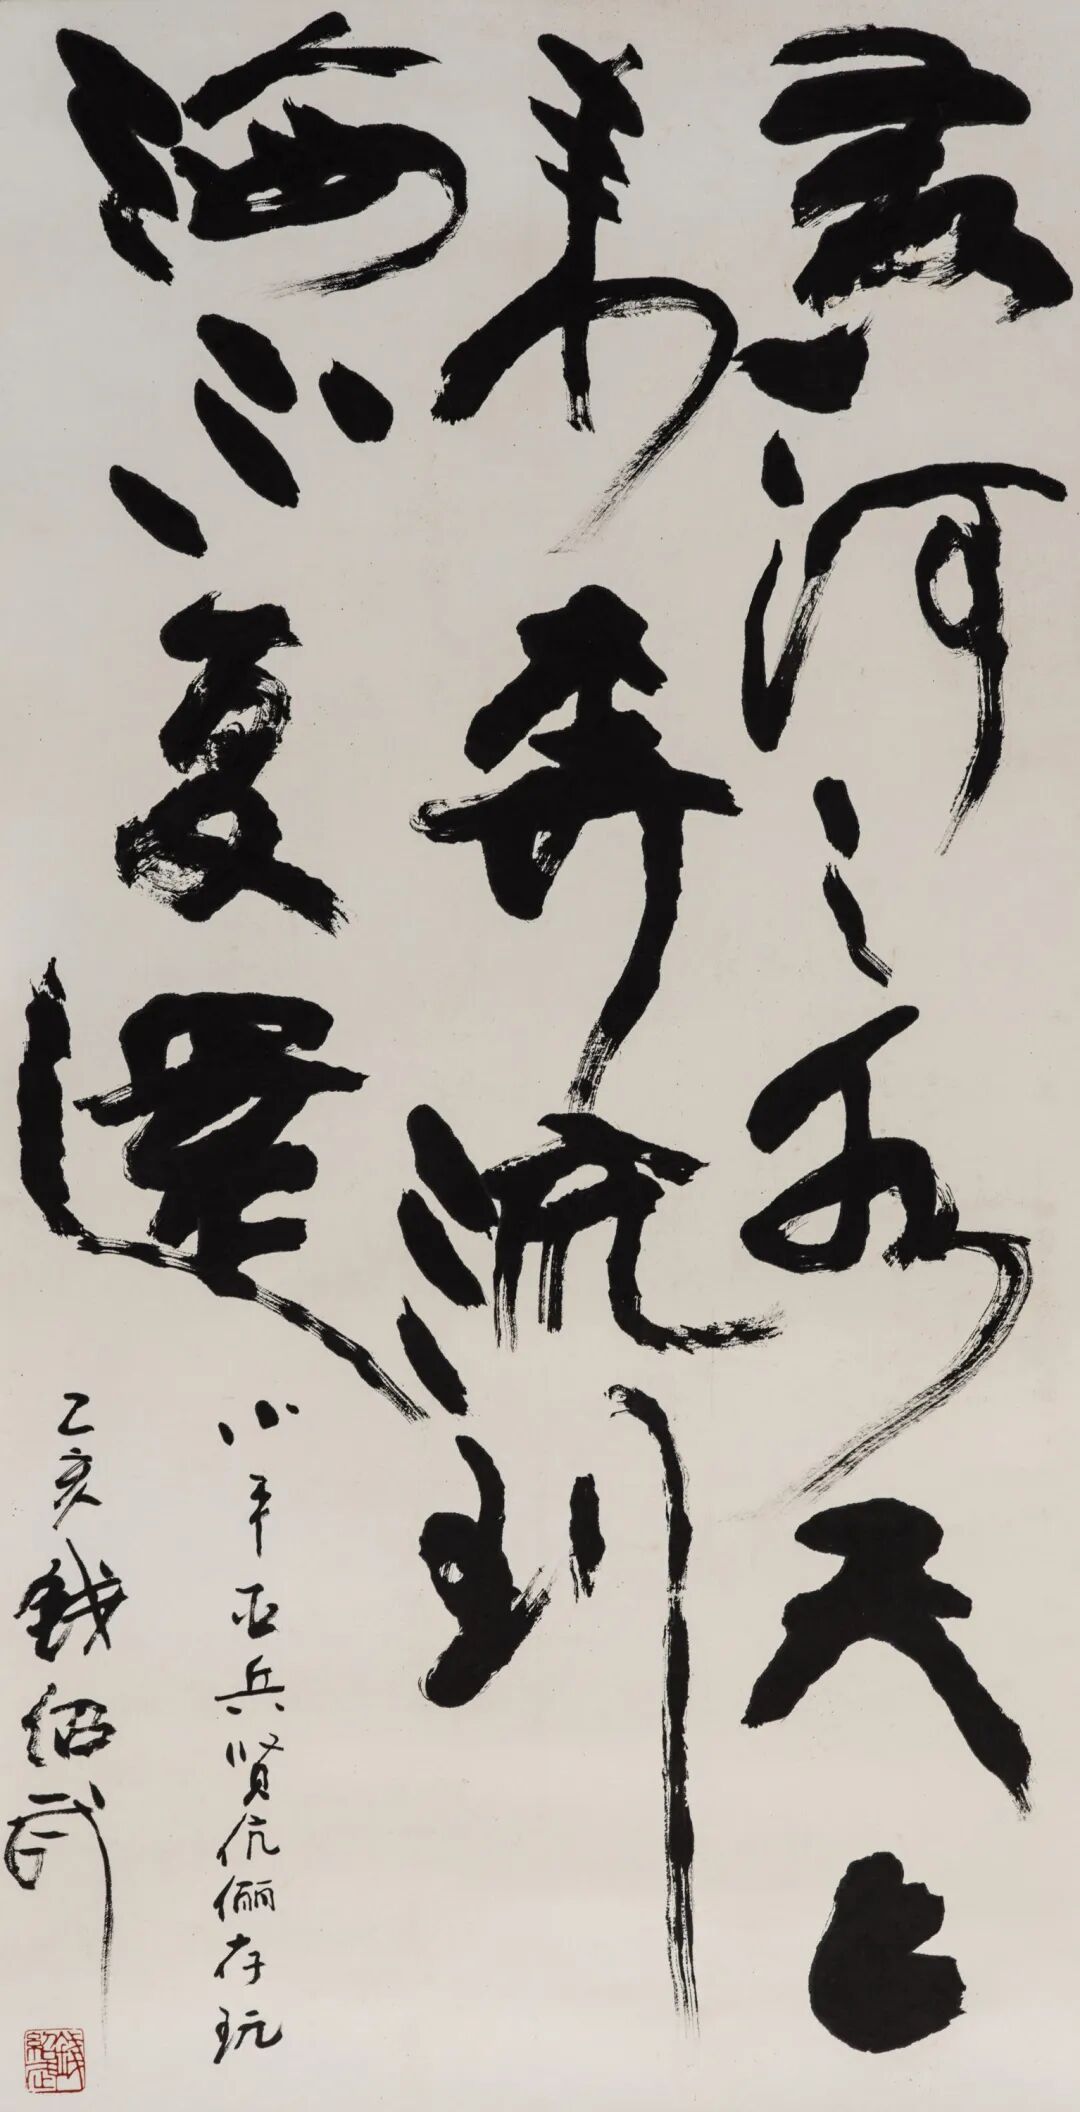 黄河之水天上
来奔流到
海不复還
小平亚兵贤伉俪存玩
乙亥 錢绍武
錢紹武